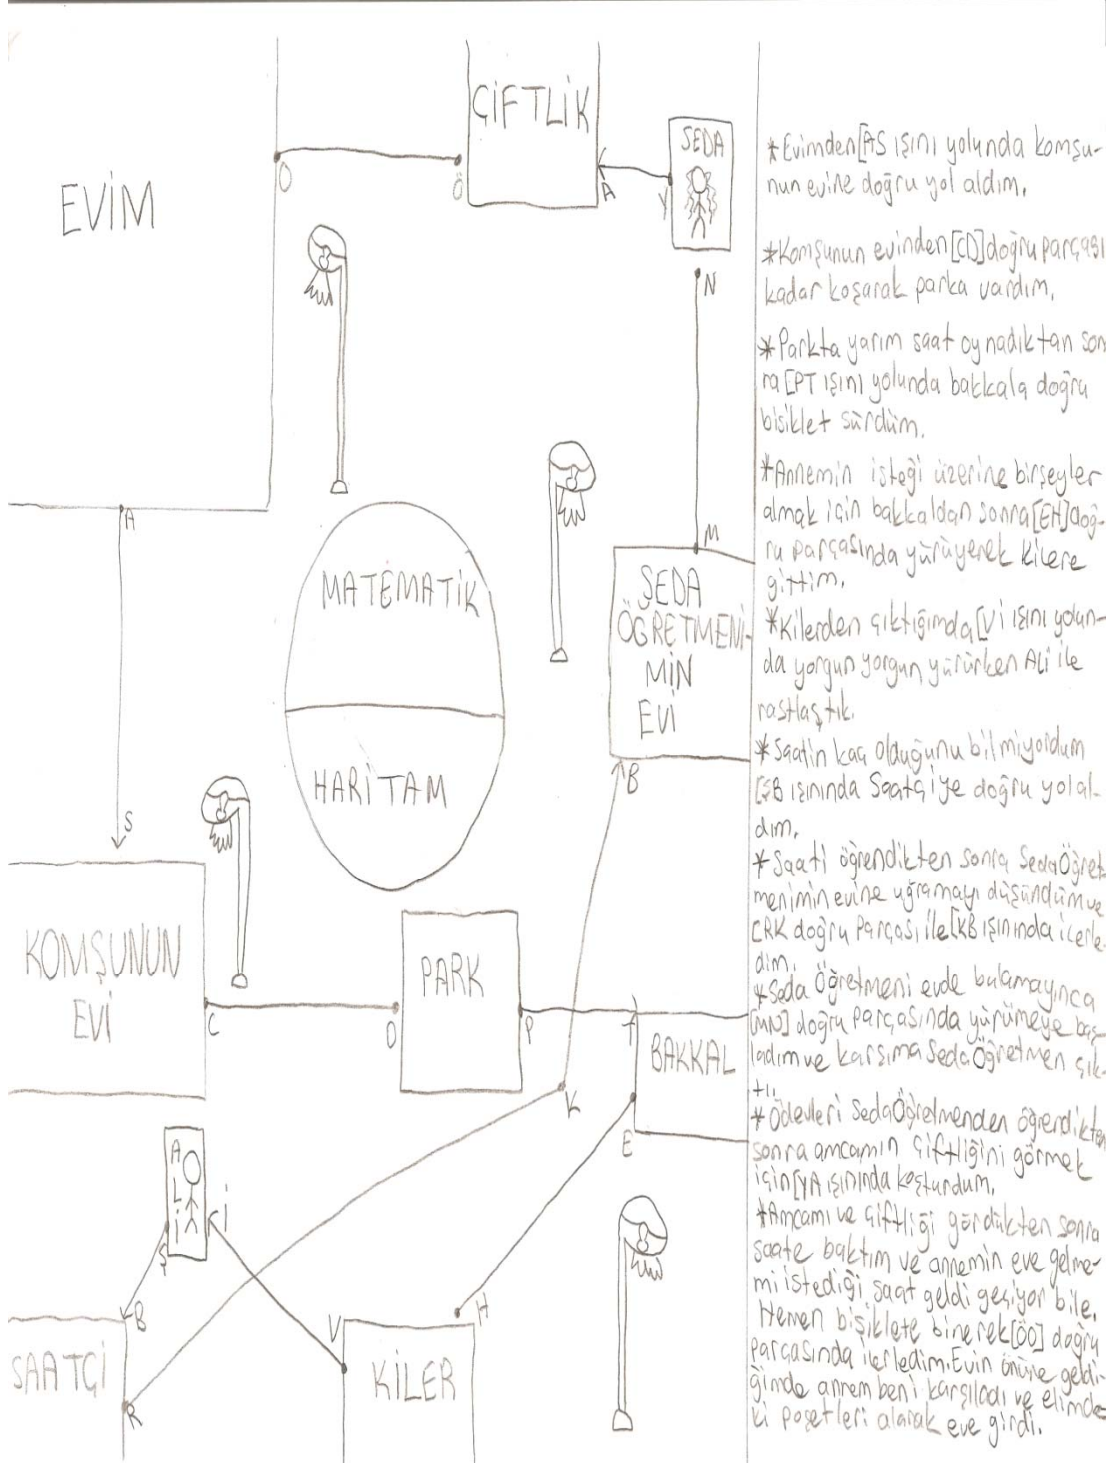 ÇİFTLİK
SEDA
EVİM
O
Ö
A
Y
N
A
M
MATEMATİK
HARİTAM
SEDA
ÖĞRETMENİ-
MİN
EVİ
B
S
KOMŞUNUN
EVİ
C
D
PARK
P
T
BAKKAL
K
E
ALİ
İ
Ş
B
SAATÇİ
R
V
H
KİLER
*Evimden [AS ışını yolunda komşu-
nun evine doğru yol aldım.
*Komşunun evinden [CD] doğru parçası
kadar koşarak parka vardım.
*Parkta yarım saat oynadıktan son
ra [PT ışını yolunda bakkala doğru
bisiklet sürdüm.
*Annemin isteği üzerine birşeyler
almak için bakkaldan sonra [EH] doğ-
ru parçasında yürüyerek kilere
gittim.
*Kilerden çıktığımda [Vİ ışını yolun-
da yorgun yorgun yürürken Ali ile
rastlaştık.
*Saatin kaç olduğunu bilmiyordum
[ŞB ışınında Saatçiye doğru yol al-
dım.
*Saati öğrendikten sonra Seda Öğret-
menimin evine uğramayı düşündüm ve
[RK doğru Parçası ile [KB ışınında ilerle-
dim.
*Seda Öğretmeni evde bulamayınca
[MN] doğru parçasında yürümeye baş-
ladım ve karşıma Seda Öğretmen çık-
tı.
*Ödevleri Seda Öğretmenden öğrendikten
sonra amcamın çiftliğini görmek
için [YA ışınında koşturdum.
*Amcamı ve çiftliği gördükten sonra
saate baktım ve annemin eve gelme-
mi istediği saat geldi geçiyor bile.
Hemen bisiklete binerek [ÖO] doğru
parçasında ilerledim. Evin önüne geldi-
ğimde annem beni karşıladı ve elimde-
ki poşetleri alarak eve girdi.